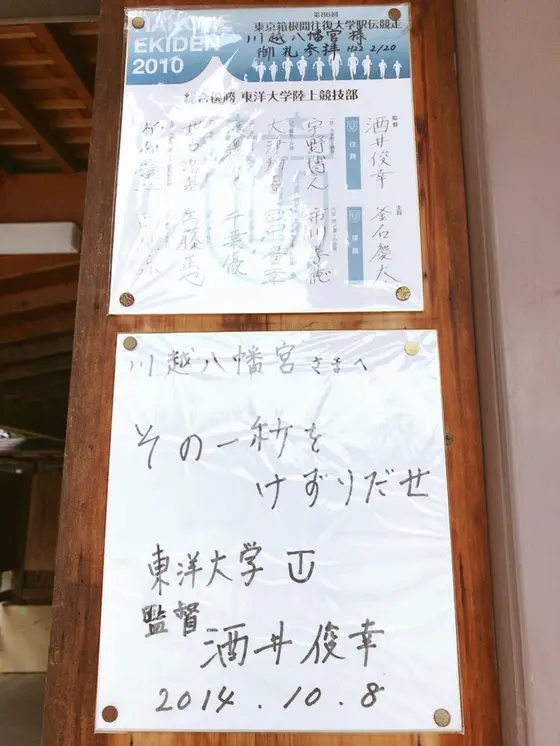 第86回
東京箱根間往復大学駅伝競走
EKIDEN
2010
川越八幡宮様
御礼参拝 H22 2/20
総合優勝 東洋大学陸上競技部
監督
酒井俊幸
主将
釜石慶太
宇野博人
市川孝徳
大津翔吾
田中貴章
千葉優
川越八幡宮さまへ
その一秒を
けずりだせ
東洋大学
監督
酒井俊幸
2014.10.8